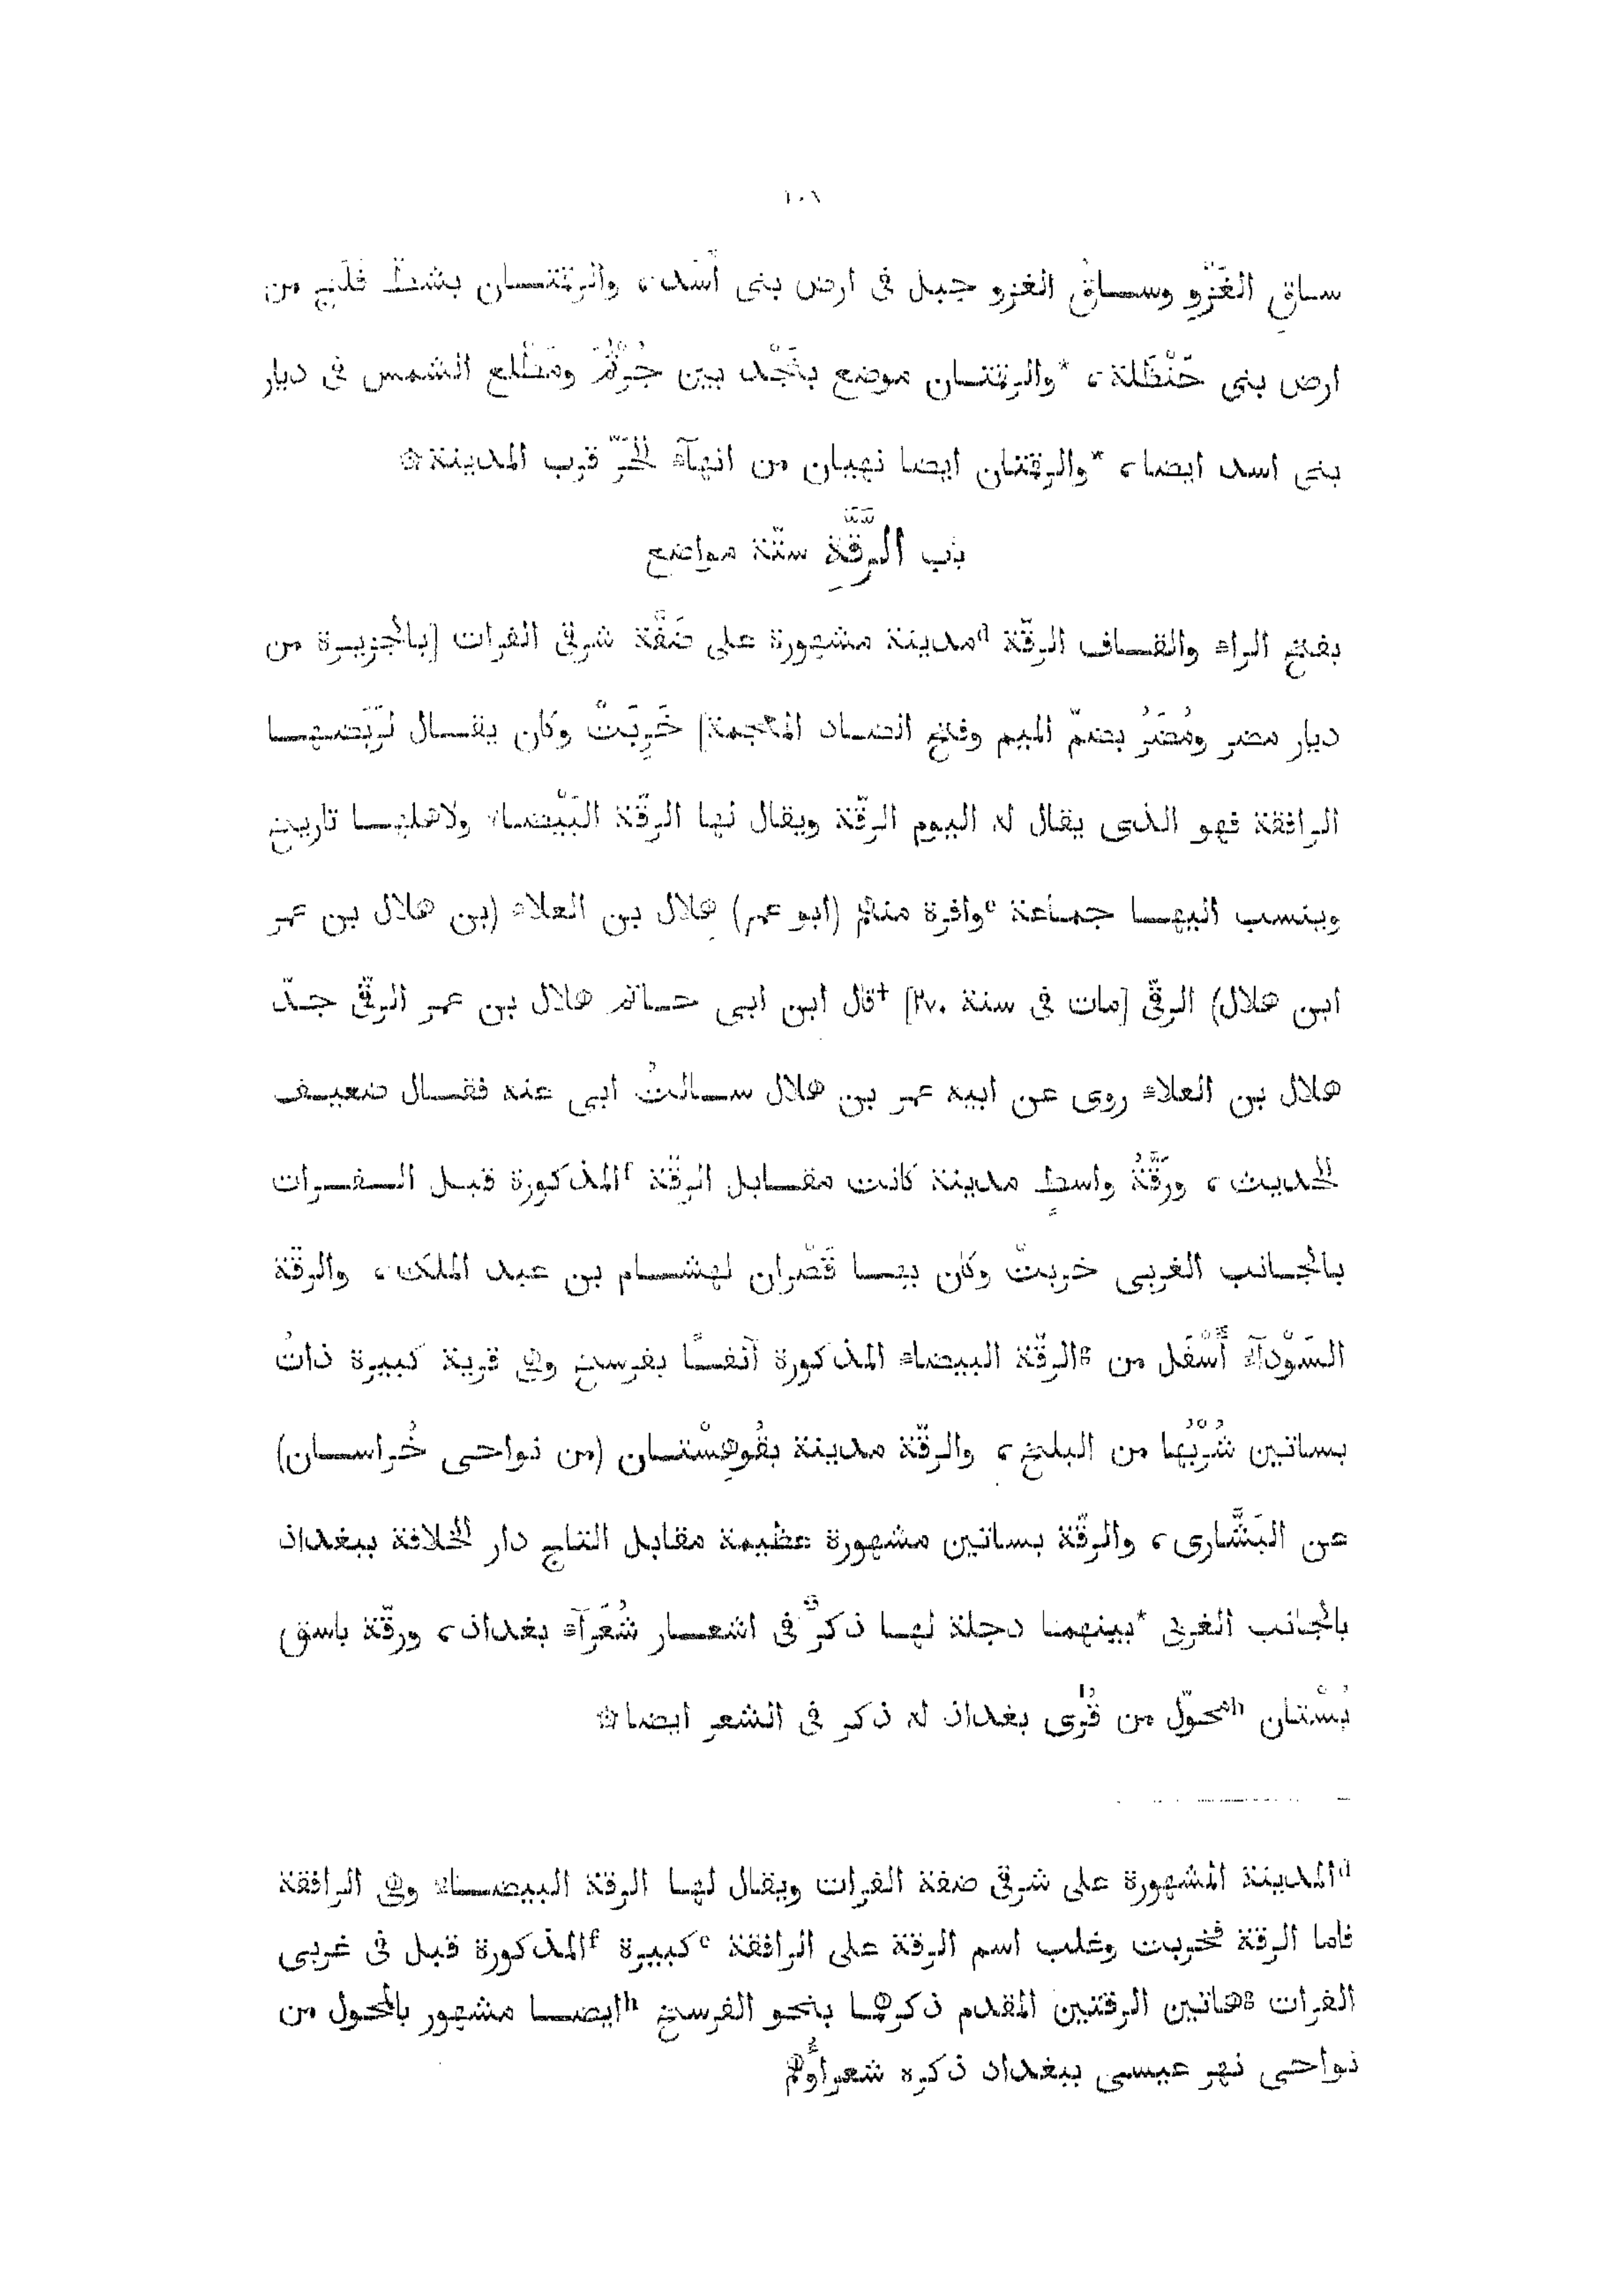 ٢٠٩
ساقِ الغَزْوِ وساقُ الغزو جبل فى ارض بنى أَسَد، والرقتان بشطّ فَلْج من
ارض بنى حَنْظَلة، *والرقتان موضع بنَجْد بين جُرْثُمَ ومَطْلع الشمس فى ديار
بنى اسد ايضا، *والرقتان ايضا نهيان من انهآء الحَرّة قرب المدينة۞
باب الرَّقَّةِ ستّة مواضع
بفتح الراء والقاف الرقّة dمدينة مشهورة على ضَفَّة شرقى الفرات [بالجزيرة من
ديار مضر ومُضَرُ بضمّ الميم وفتح الضاد المعجمة] خَرِبَتْ وكان يقال لرَبَضها
الرافقة فهو الذى يقال له اليوم الرقّة ويقال لها الرقّة البَيْضاء ولاهلها تاريخ
وينسب اليها جماعة eوافرة منهم (ابو عمر) هلال بن العلاء (بن هلال بن عمر
ابن هلال) الرقّى [مات فى سنة ٢٧٠] †قال ابن ابى حاتم هلال بن عمر الرقّى جدّ
هلال بن العلاء روى عن ابيه عمر بن هلال سالتُ ابى عنه فقال ضعيف
الحديث، ورَقَّةُ واسطٍ مدينة كانت مقابل الرقّة fالمذكورة قبل الفرات
بالجانب الغربى خربتْ وكان بها قَصْران لهشام بن عبد الملك، والرقّة
السَوْدآء أَسْفَل من gالرقّة البيضاء المذكورة آنفًا بفرسخ وهى قرية كبيرة ذاتُ
بساتين شُرْبُها من البليخ، والرقّة مدينة بقُوهِسْتان (من نواحى خُراسان)
عن البَشَّارى، والرقّة بساتين مشهورة عظيمة مقابل التاج دار الخلافة ببغداد
بالجانب الغربى *بينهما دجلة لها ذكرٌ فى اشعار شُعَرآء بغداد، ورقّة باسق
بُسْتان hبمحوّل من قُرَى بغداد له ذكر فى الشعر ايضا۞
dالمدينة المشهورة على شرقى ضفة الفرات ويقال لها الرقة البيضاء وهى الرافقة
فاما الرقة فخربت وغلب اسم الرقة على الرافقة eكبيرة fالمذكورة قبل فى غربى
الفرات gهاتين الرقتين المقدم ذكرهما بنحو الفرسخ hايضا مشهور بالمحول من
نواحى نهر عيسى ببغداد ذكره شعراؤهم